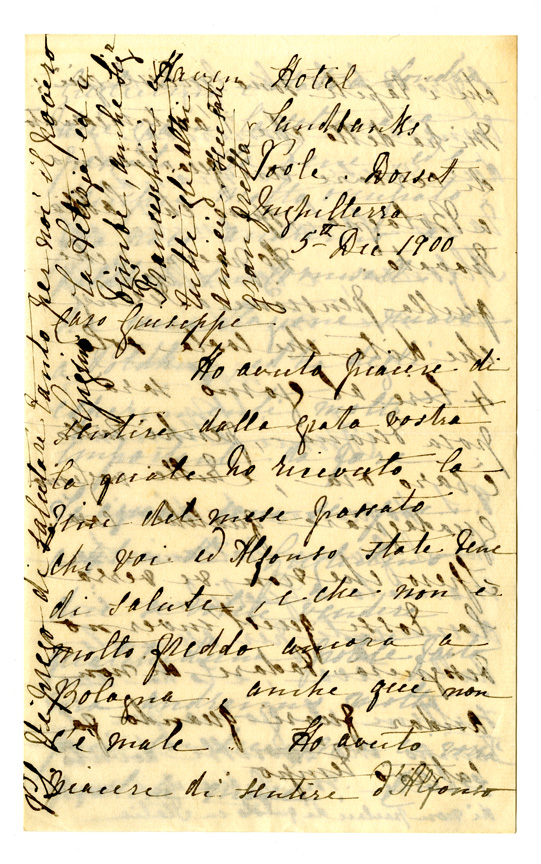 Haven Hotel
Sandbanks
Poole. Dorset
Inghilterra
5th Dic 1900
Caro Guiseppe
Ho avuto piacere di
sentire dalla grata vostra
la quale ho ricevuto la
fine del mese passato
che voi ed Alfonso state bene
di salute, e che non è
molto freddo ancora a
Bologna, anche que non
c'è male. Ho avuto
piacere di sentire d'Alfonso
PS Vi prego di salutare tanto per noi il povero
Gigino
la Letizia ed i
bimbi, anche Sig
Franceschini e
tutti gli altri
amici. Accettate
gran fretta